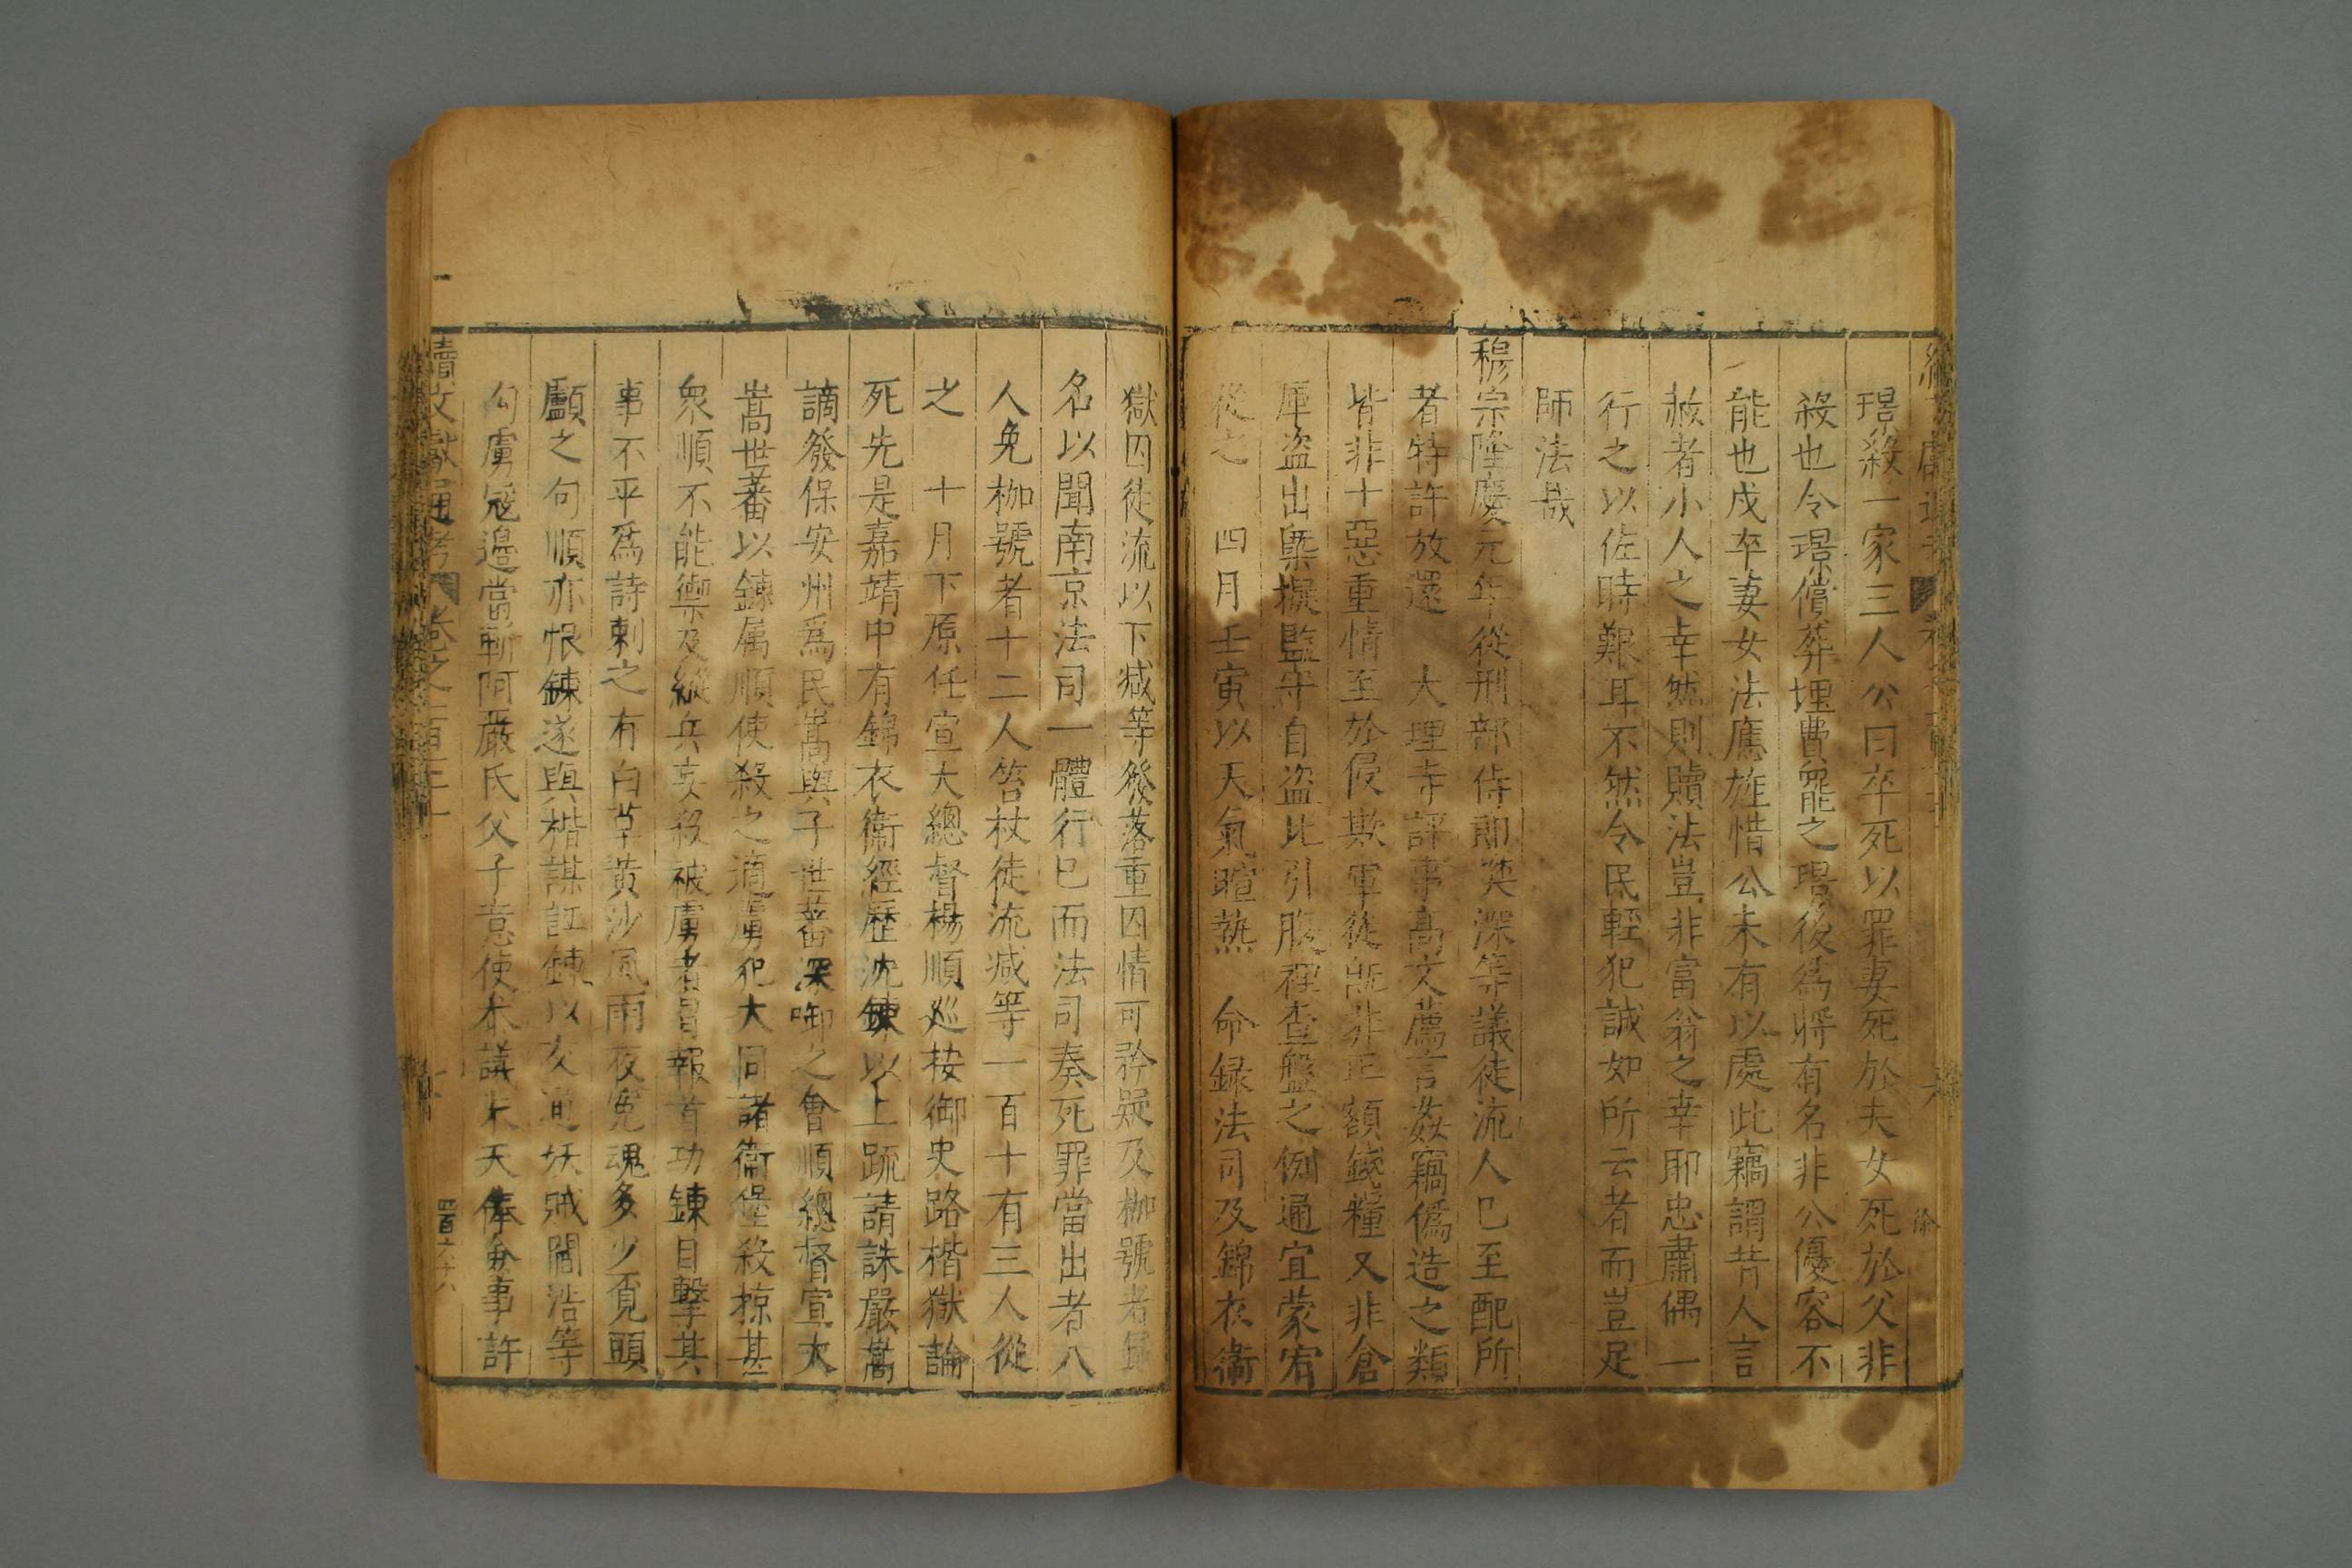 璟殺一家三人公曰卒死以罪妻死於夫女死於父非
殺也令璟償葬埋費罷之璟後爲將有名非公優容不
能也戍卒妻女法應旌惜公未有以處此竊謂昔人言
赦者小人之幸然則贖法豈非富翁之幸耶忠肅偶一
行之以佐時艱耳不然令民輕犯誠如所云者而豈足
師法哉
穆宗隆慶元年從刑部侍郎樊深等議徒流人已至配所
者特許放還 大理寺評事高文薦言姦竊僞造之類
皆非十惡重情至於侵欺軍徒既非正額錢糧又非倉
庫盜出槩擬監守自盜比引腹裡查盤之例通宜蒙宥
從之 四月壬寅以天氣暄熱 命録法司及錦衣衞
獄囚徒流以下減等發落重囚情可矜疑及枷號者
名以聞南京法司一體行已而法司奏死罪當出者八
人免枷號者十二人笞杖徒流減等一百十有三人從
之 十月下原任宣大總督楊順巡按御史路楷獄論
死先是嘉靖中有錦衣衞經歷沈鍊以上疏請誅嚴嵩
謫發保安州爲民嵩與子世蕃深啣之會順總督宣大
嵩世蕃以鍊属順使殺之適虜犯大同諸衞堡殺掠甚
衆順不能禦及縱兵妄殺被虜者冒報首功鍊目擊其
事不平爲詩刺之有白草黃沙風雨夜冤魂多少覔頭
顱之句順亦恨鍊遂與楷謀誣鍊以交通妖賊閻浩等
勾虜冦邊當斬阿嚴氏父子意使本議 天俸僉事許
續文獻通考 卷之一百三十 七 四百六十八